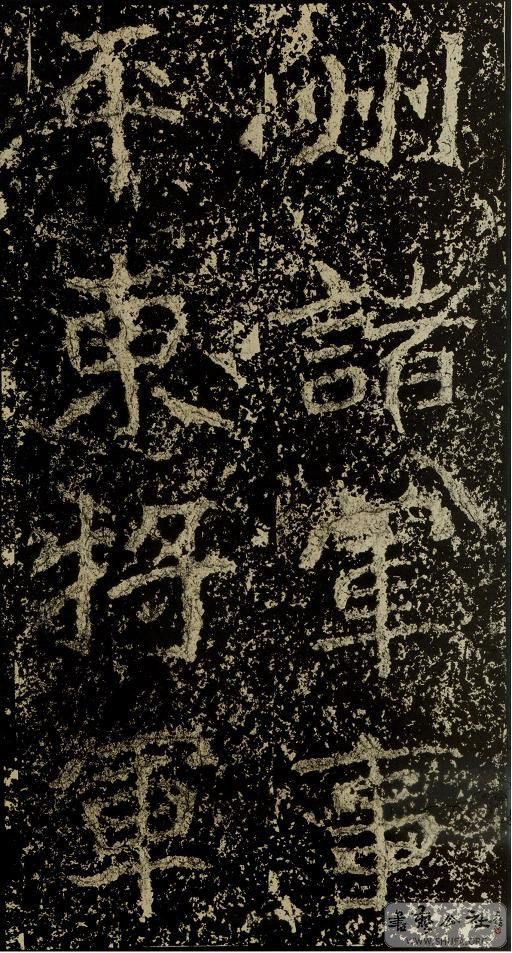 州諸軍事
平東將軍
書藝公社
WWW.SHUFA.ORG